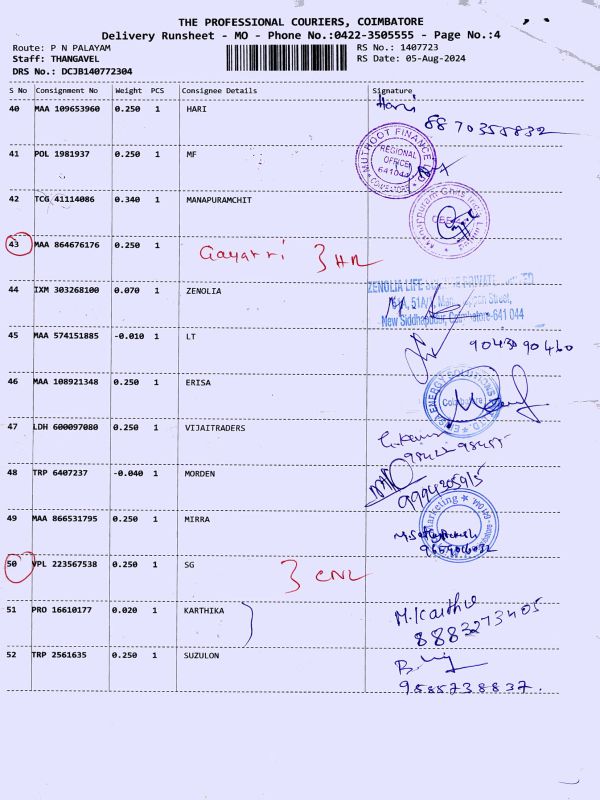 THE PROFESSIONAL COURIERS, COIMBATORE
Delivery Runsheet - MO - Phone No.:0422-3505555 - Page No.:4
Route: P N PALAYAM RS No.: 1407723
Staff: THANGAVEL RS Date: 05-Aug-2024
DRS No.: DCJB140772304
S No Consignment No Weight PCS Consignee Details Signature
40 MAA 109653960 0.250 1 HARI Hari
8870355832
41 POL 1981937 0.250 1 MF MUTHOOT FINANCE LTD REGIONAL OFFICE 641044 COIMBATORE
42 TCG 41114086 0.340 1 MANAPURAMCHIT Manappuram Chits India Limited
43 MAA 864676176 0.250 1 Gayatri
44 IXM 303268100 0.070 1 ZENOLIA ZENOLIA LIFE PRIVATE LIMITED
Street,
New Siddhapudur, Coimbatore-641 044
45 MAA 574151885 -0.010 1 LT 9043090460
46 MAA 108921348 0.250 1 ERISA ERISA ENERGY SOLUTIONS LTD. Coimbatore
47 LDH 600097080 0.250 1 VIJAITRADERS
48 TRP 6407237 -0.040 1 MORDEN
49 MAA 866531795 0.250 1 MIRRA Marketing
50 VPL 223567538 0.250 1 SG
51 PRO 16610177 0.020 1 KARTHIKA M.Karthi
8883273405
52 TRP 2561635 0.250 1 SUZULON
9585738837.